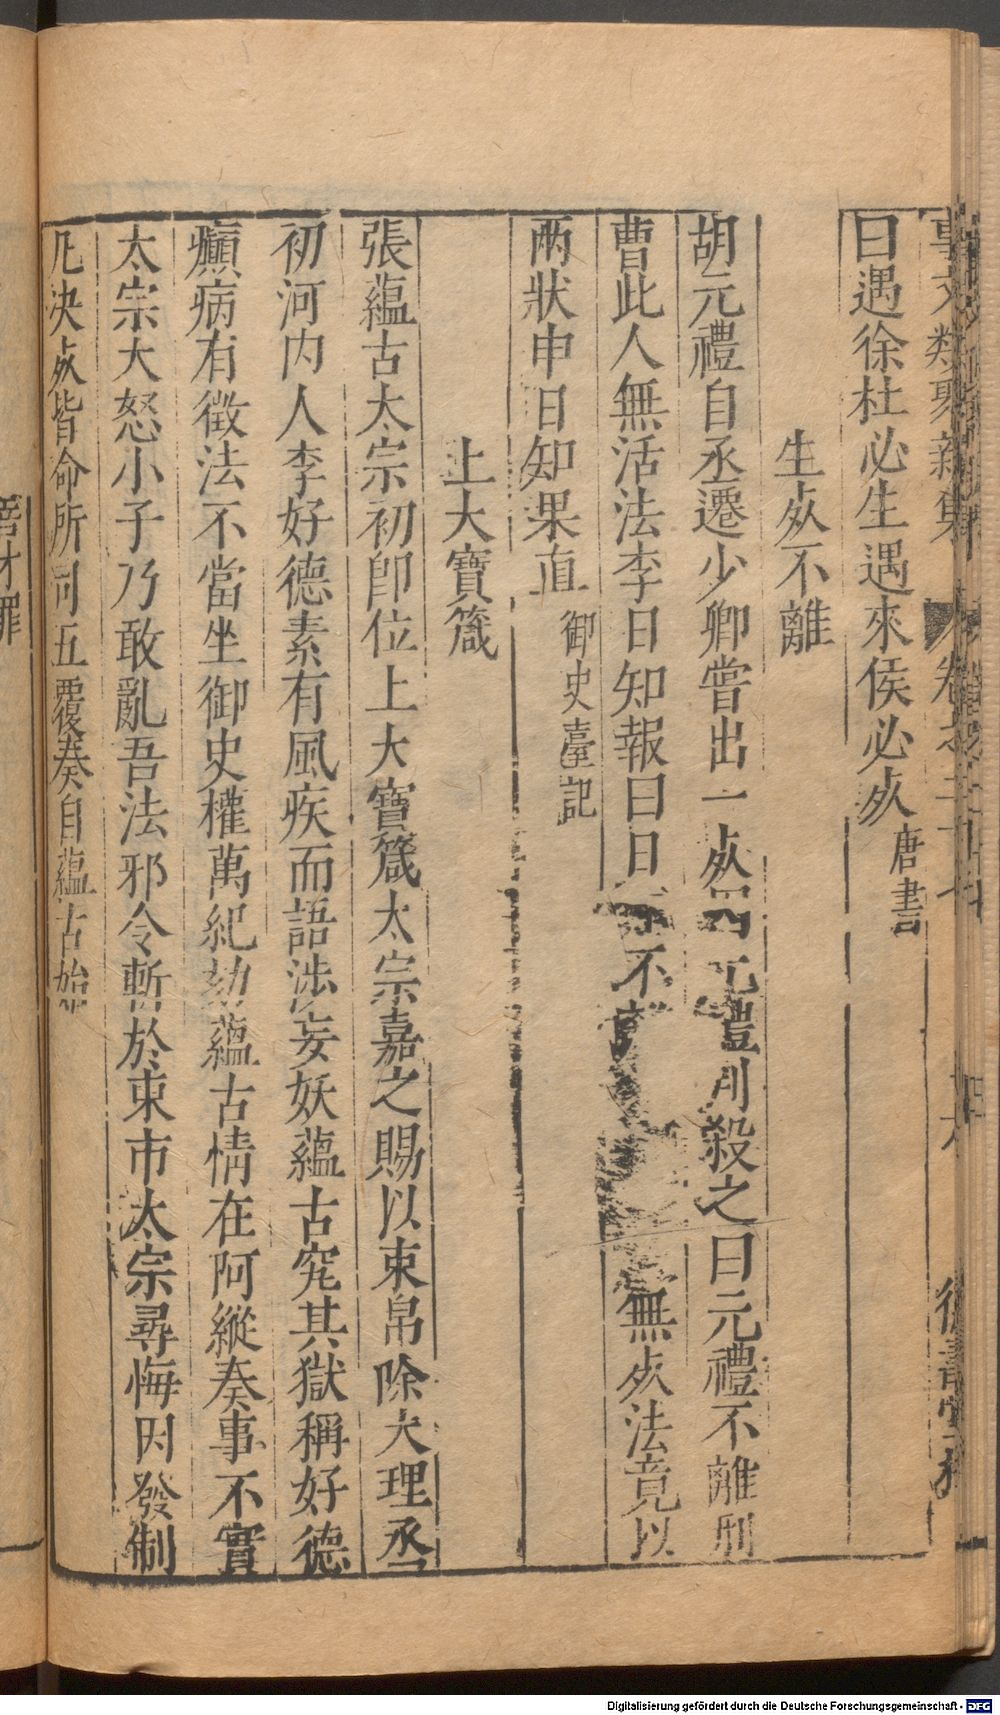 事文類聚新集 卷之三十七
曰遇徐杜必生遇來侯必死 唐書
生死不離
胡元禮自丞遷少卿嘗出一死囚元禮判殺之曰元禮不離刑
曹此人無活法李日知報曰日知不離 無死法竟以
兩狀申日知果直 御史臺記
上大寶箴
張蘊古太宗初即位上大寶箴太宗嘉之賜以束帛除大理丞
初河內人李好德素有風疾而語涉妄妖蘊古究其獄稱好德
癲病有徵法不當坐御史權萬紀劾蘊古情在阿縱奏事不實
太宗大怒小子乃敢亂吾法邪令斬於東市太宗尋悔因發制
凡決死皆命所司五覆奏自蘊古始
Digitalisierung gefördert durch die Deutsche Forschungsgemeinschaft - DFG